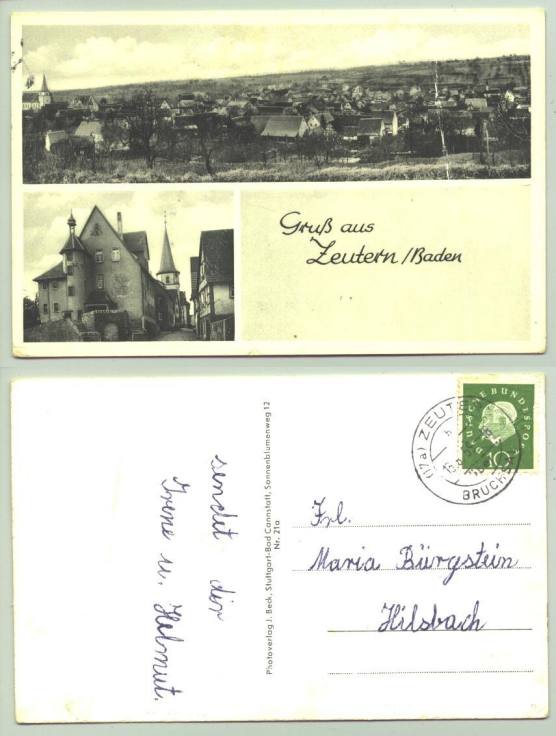 Gruß aus
Zeutern/Baden
sendet dir
Irene u. Helmut.
Photoverlag J. Beck, Stuttgart-Bad Cannstatt, Sonnenblumenweg 12
Nr. 21a
DEUTSCHE BUNDESPOST
10
(17a) ZEUTERN
BRUCHSAL
Frl.
Maria Bürgstein
Hilsbach